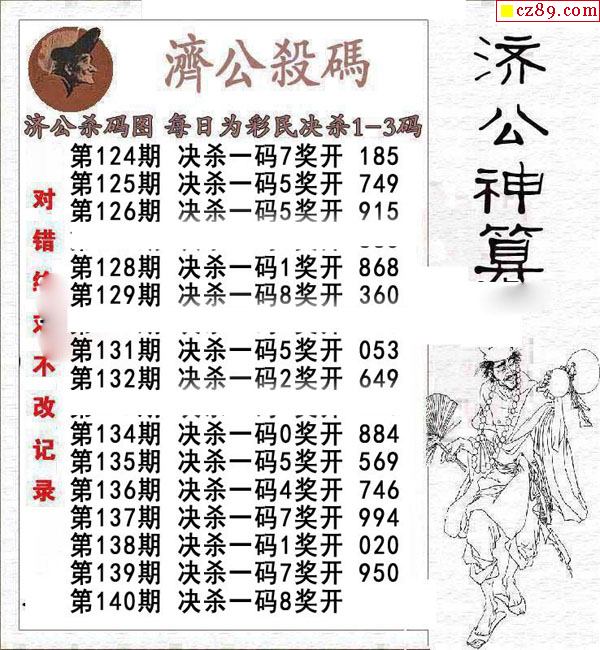 cz89.com
濟公殺碼
济公杀码图 每日为彩民决杀1-3码
第124期 决杀一码7奖开 185
第125期 决杀一码5奖开 749
第126期 决杀一码5奖开 915
第128期 决杀一码1奖开 868
第129期 决杀一码8奖开 360
第131期 决杀一码5奖开 053
第132期 决杀一码2奖开 649
第134期 决杀一码0奖开 884
第135期 决杀一码5奖开 569
第136期 决杀一码4奖开 746
第137期 决杀一码7奖开 994
第138期 决杀一码1奖开 020
第139期 决杀一码7奖开 950
第140期 决杀一码8奖开
对错
不改记录
济公神算